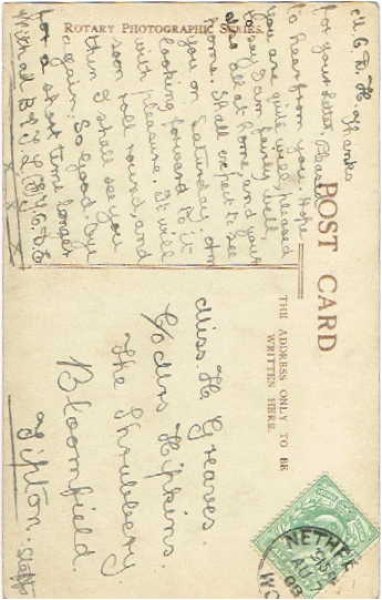 ROTARY PHOTOGRAPHIC SERIES.
POST CARD
THE ADDRESS ONLY TO BE
WRITTEN HERE.
M. G. D. H. Thanks
for your letter. Pleased
to hear from you. Hope
you are quite well, pleased
to say I am fairly well,
also all at home, and your
home. Shall expect to see
you on Saturday. Am
looking forward to it
with pleasure. It will
soon roll round, and
then I shall see you
again. So Good-bye
for a short time longer
With
x x x x
Miss. H. Greaves.
C/o Mrs Hipkins.
The Shrubbery.
Bloomfield.
Tipton. Staffs
NETHE
AU
08
WO